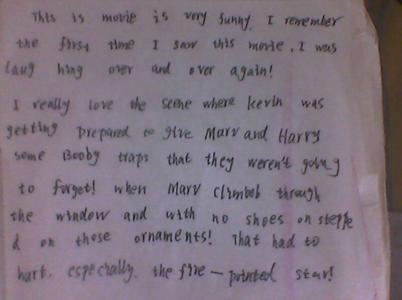 This is movie is very funny. I remember
the first time I saw this movie, I was
laug hing over and over again!
I really love the scene where kevin was
getting prepared to give Marv and Harry
some Booby traps that they weren't going
to forget! when Marv climbeb through
the window and with no shoes on steppe
d on those ornaments! That had to
hurt. especially. the five - pointed star!